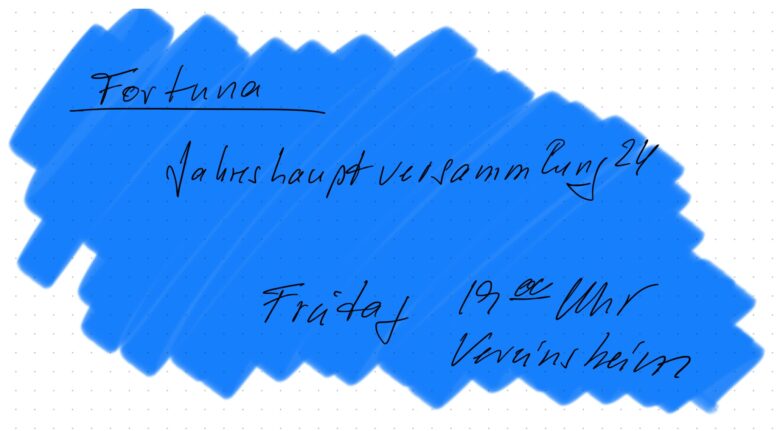 Fortuna
Jahreshauptversammlung 24
Freitag 19 00 Uhr
Vereinsheim